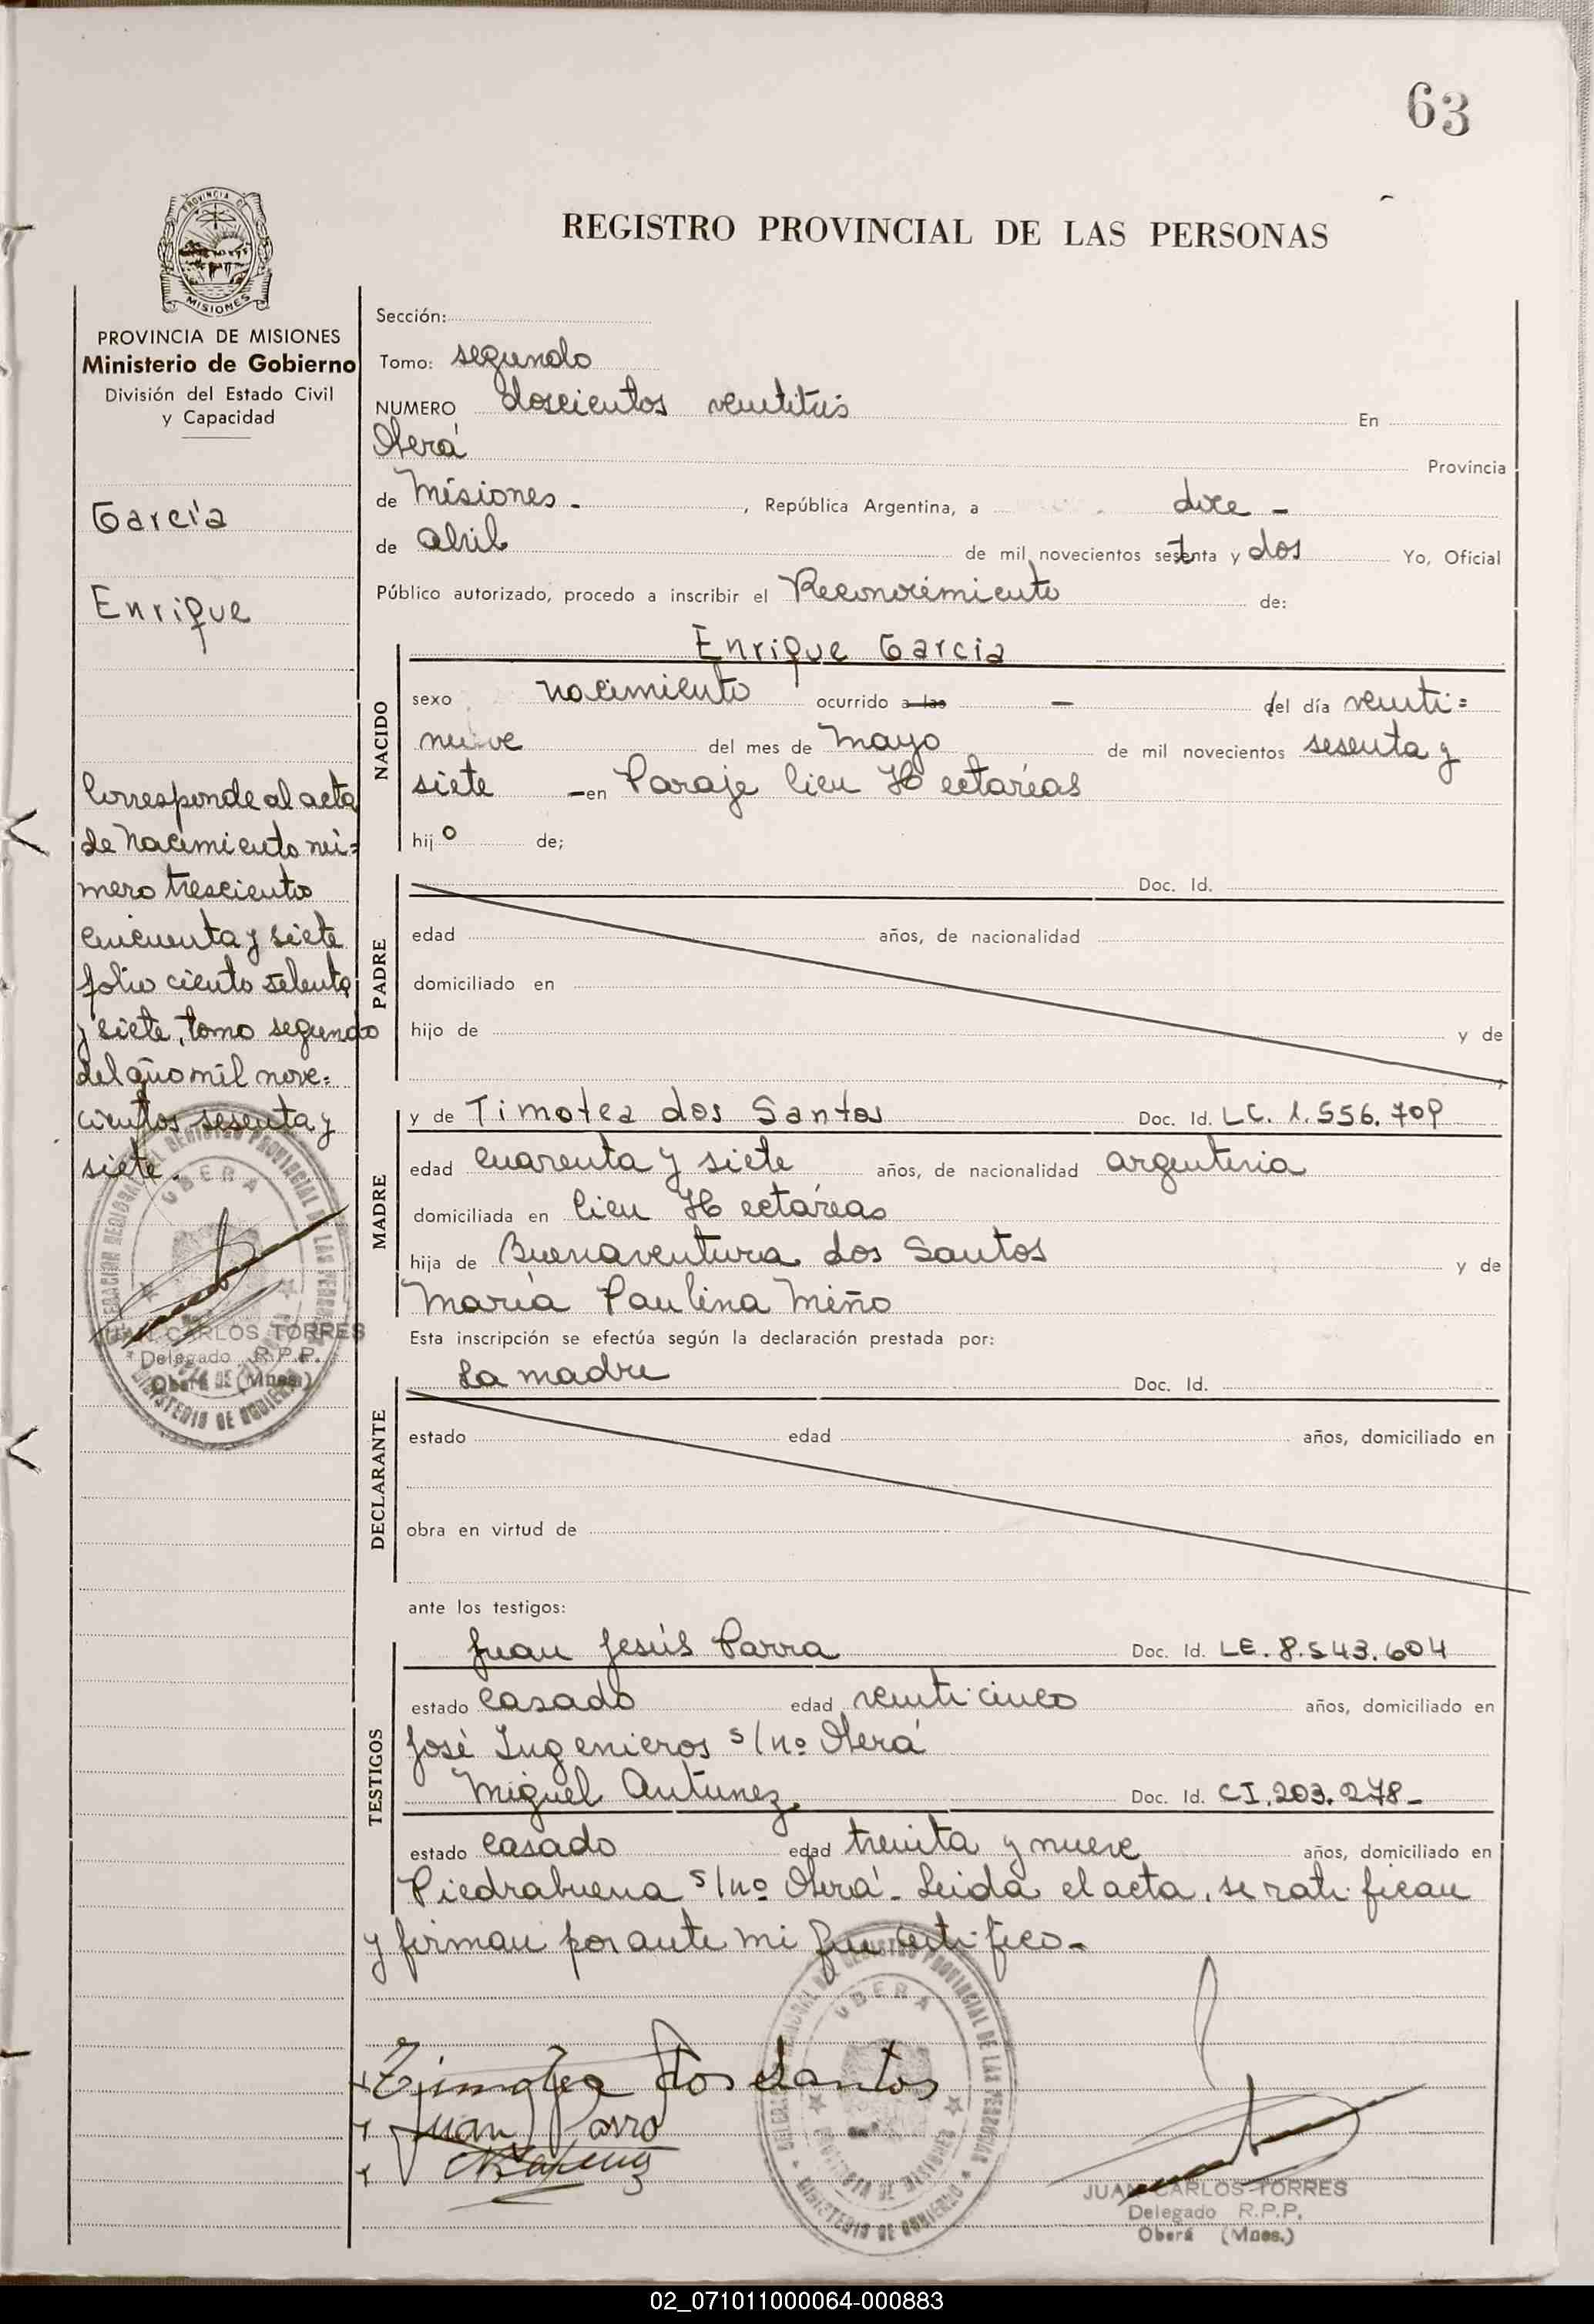 63
REGISTRO PROVINCIAL DE LAS PERSONAS
PROVINCIA DE
MISIONES
PROVINCIA DE MISIONES
Ministerio de Gobierno
División del Estado Civil
y Capacidad
García
Enrique
Corresponde al acta
de Nacimiento nú=
mero trescientos
cincuenta y siete
folio ciento setenta
y siete, tomo segundo
del año mil nove=
cientos sesenta y
siete.
JUAN CARLOS TORRES
Delegado R.P.P.
Oberá (Mnes.)
Sección:
Tomo: segundo
NUMERO doscientos veintitrés En
Oberá Provincia
de Misiones - , República Argentina, a doce -
de abril de mil novecientos setenta y dos Yo, Oficial
Público autorizado, procedo a inscribir el Reconocimiento de:
NACIDO
Enrique Garcia
sexo nacimiento ocurrido a las - del día veinti=
nueve del mes de Mayo de mil novecientos sesenta y
siete -en Paraje Cien Hectáreas
hijo de;
PADRE
Doc. Id.
edad años, de nacionalidad
domiciliado en
hijo de y de
MADRE
y de Timotea dos Santos Doc. Id. LC. 1.556.709
edad cuarenta y siete años, de nacionalidad argentina
domiciliada en Cien Hectáreas
hija de Buenaventura dos Santos y de
María Paulina Miño
Esta inscripción se efectúa según la declaración prestada por:
DECLARANTE
La madre Doc. Id.
estado edad años, domiciliado en
obra en virtud de
ante los testigos:
TESTIGOS
Juan Jesús Parra Doc. Id. LE. 8.543.604
estado casado edad veinticinco años, domiciliado en
José Ingenieros s/nº Oberá
Miguel Antunez Doc. Id. CI. 203.278-
estado casado edad treinta y nueve años, domiciliado en
Piedrabuena s/nº Oberá- Leída el acta, se ratifican
y firman por ante mi que certifico-
Timotea dos Santos
Juan J Parra
DELEGACION REGIONAL DEL REGISTRO PROVINCIAL DE LAS PERSONAS
OBERA
PROVINCIA DE MISIONES
MINISTERIO DE GOBIERNO
JUAN CARLOS TORRES
Delegado R.P.P.
Oberá (Mnes.)
02_071011000064-000883